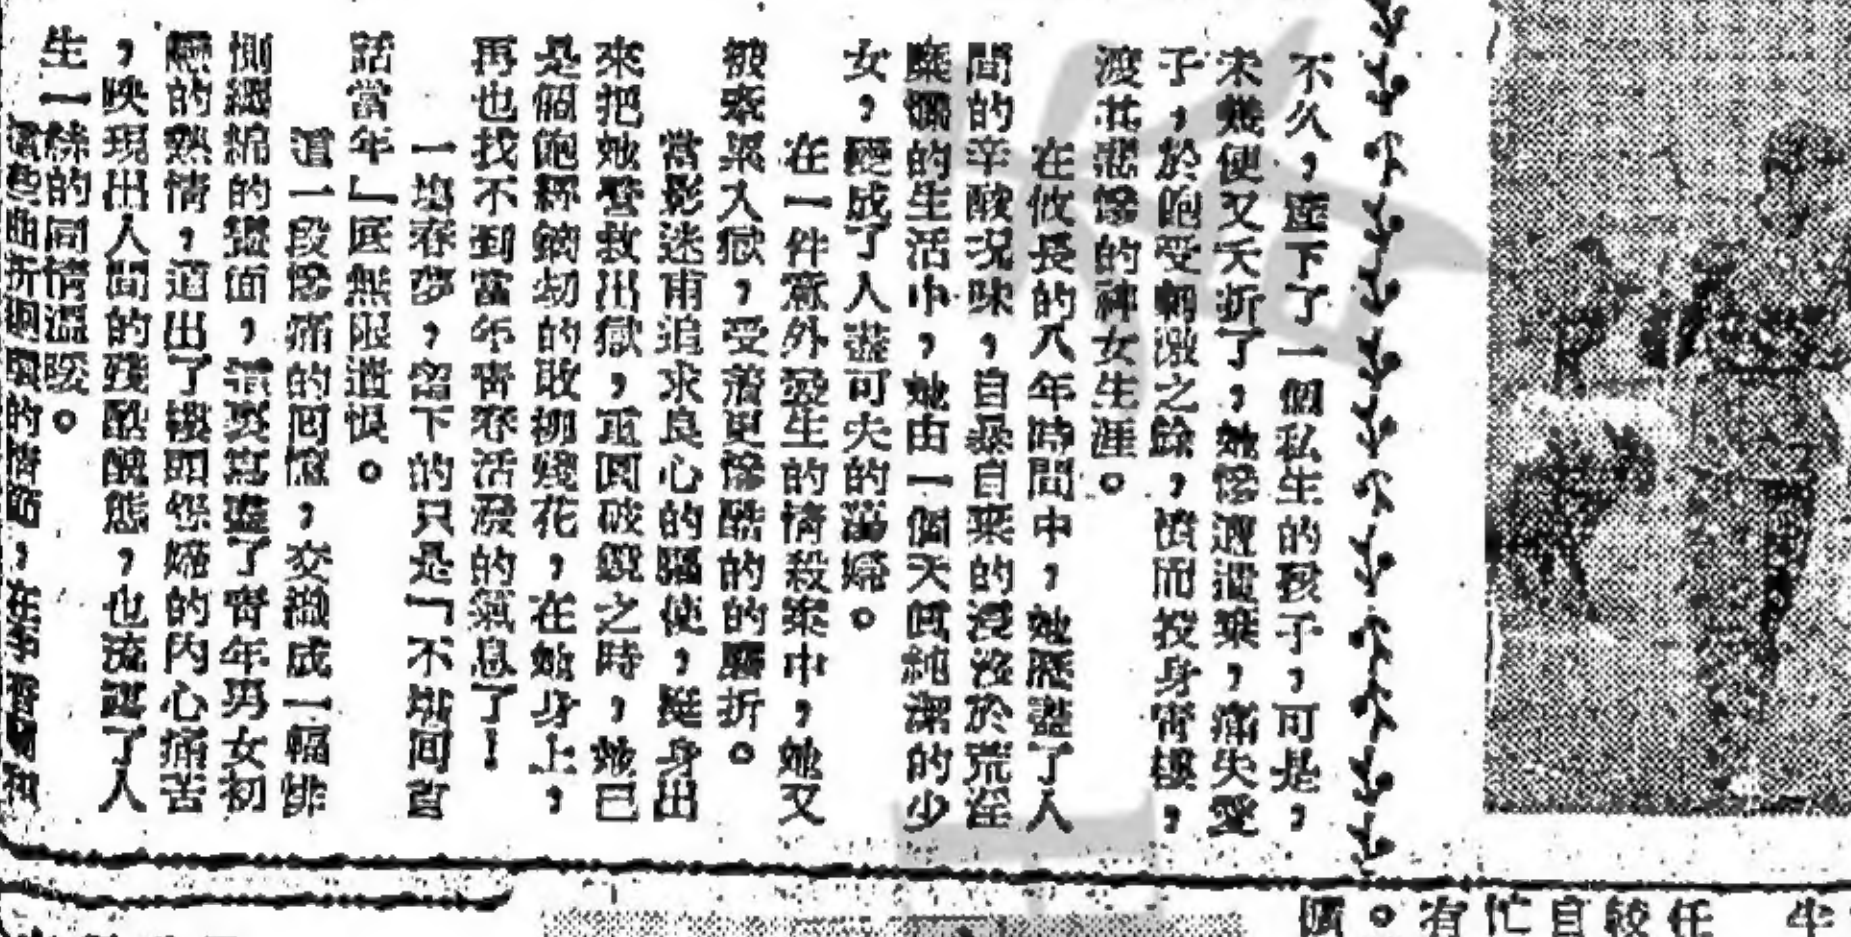 不久，產下了一個私生的孩子，可是，
未幾便又夭折了，她慘遭遺棄，痛失愛
子，於飽受刺激之餘，憤而投身靑樓，
渡其悲慘的神女生涯。
在攸長的八年時間中，她歷盡了人
間的辛酸况味，自暴自棄的浸沒於荒淫
糜爛的生活中，她由一個天眞純潔的少
女，變成了人盡可夫的蕩婦。
在一件意外發生的情殺案中，她又
被牽累入獄，受着更慘酷的的磨折。
當影迷甫追求良心的驅使，挺身出
來把她營救出獄，重圓破鏡之時，她已
是個飽經蹂躪的敗柳殘花，在她身上，
再也找不到當年靑春活潑的氣息了！
一塲春夢，留下的只是「不堪回首
話當年」底無限遺恨。
這一段慘痛的回憶，交織成一幅悱
惻纏綿的畫面，描寫盡了靑年男女初
戀的熱情，道出了樓頭怨婦的內心痛苦
，映現出人間的殘酷醜態，也流露了人
生一絲的同情溫暖。
這些曲折的情節，在李
有忙自較任